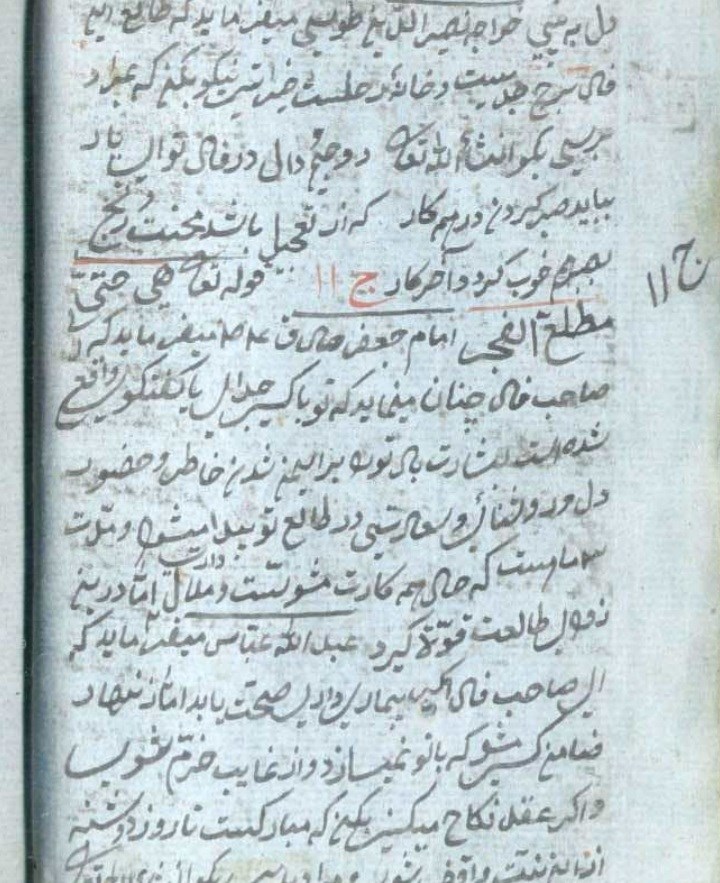 دل به بینی خواجه نصیر الدین طوسی میفرماید که طالع این
فال برج جدیست و خانهٔ زحلست خیراتیت نیکو بکن که بمراد
برسی بکو انشاء الله تعالی د و جیم دال در فال تو ای یار
بباید صبر کردن در همه کار که از تعجیل باشد محنت و رنج
بصبرم خوب کردد آخر کار ج ۱۱ قوله تعالی هی حتی
ج ۱۱
مطلع الفجر امام جعفر صادق ع م میفرماید که ای
صاحب فال چنان مینماید که تو با کسی جدال یا کفتکوی واقع
شده است بشارت باد تورا بر ایمن شدن خاطر و حضور
دل و دولتی و سعادتی در طالع تو پیدا میشود و مدت
ماهست که حال همه کارت مشوشست و ملال دارد امّا درین
زودی طالعت قوّة کیرد عبد الله عباس میفرماید که
ای صاحب فال اکر بیماری داری صحت یابد امّا زنهار
ضامن کسی مشو که با تو نمیسازد و از غایب خرّم شوی
و اکر عقد نکاح میکنی بکن که مبارکست تا روز دوشنبه